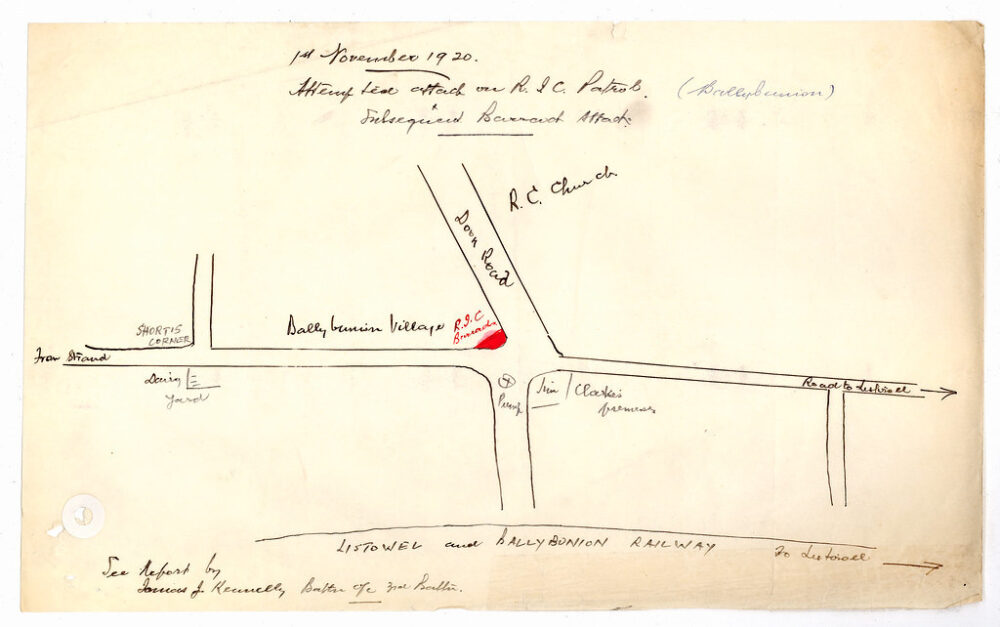 1st November 1920.
Attempted attack on R.I.C. Patrol. (Ballybunion)
Subsequent Barrack Attack.
R.C. Church
Doon Road
SHORTIS
CORNER
Ballybunion Village
R.I.C
Barracks
From Strand
Dairy
Yard
Pump
Jim Clarke's
premises
Road to Listowel
LISTOWEL and BALLYBUNION RAILWAY
To Listowel
See Report by
James J. Kennelly Battn o/c 3rd Battn.